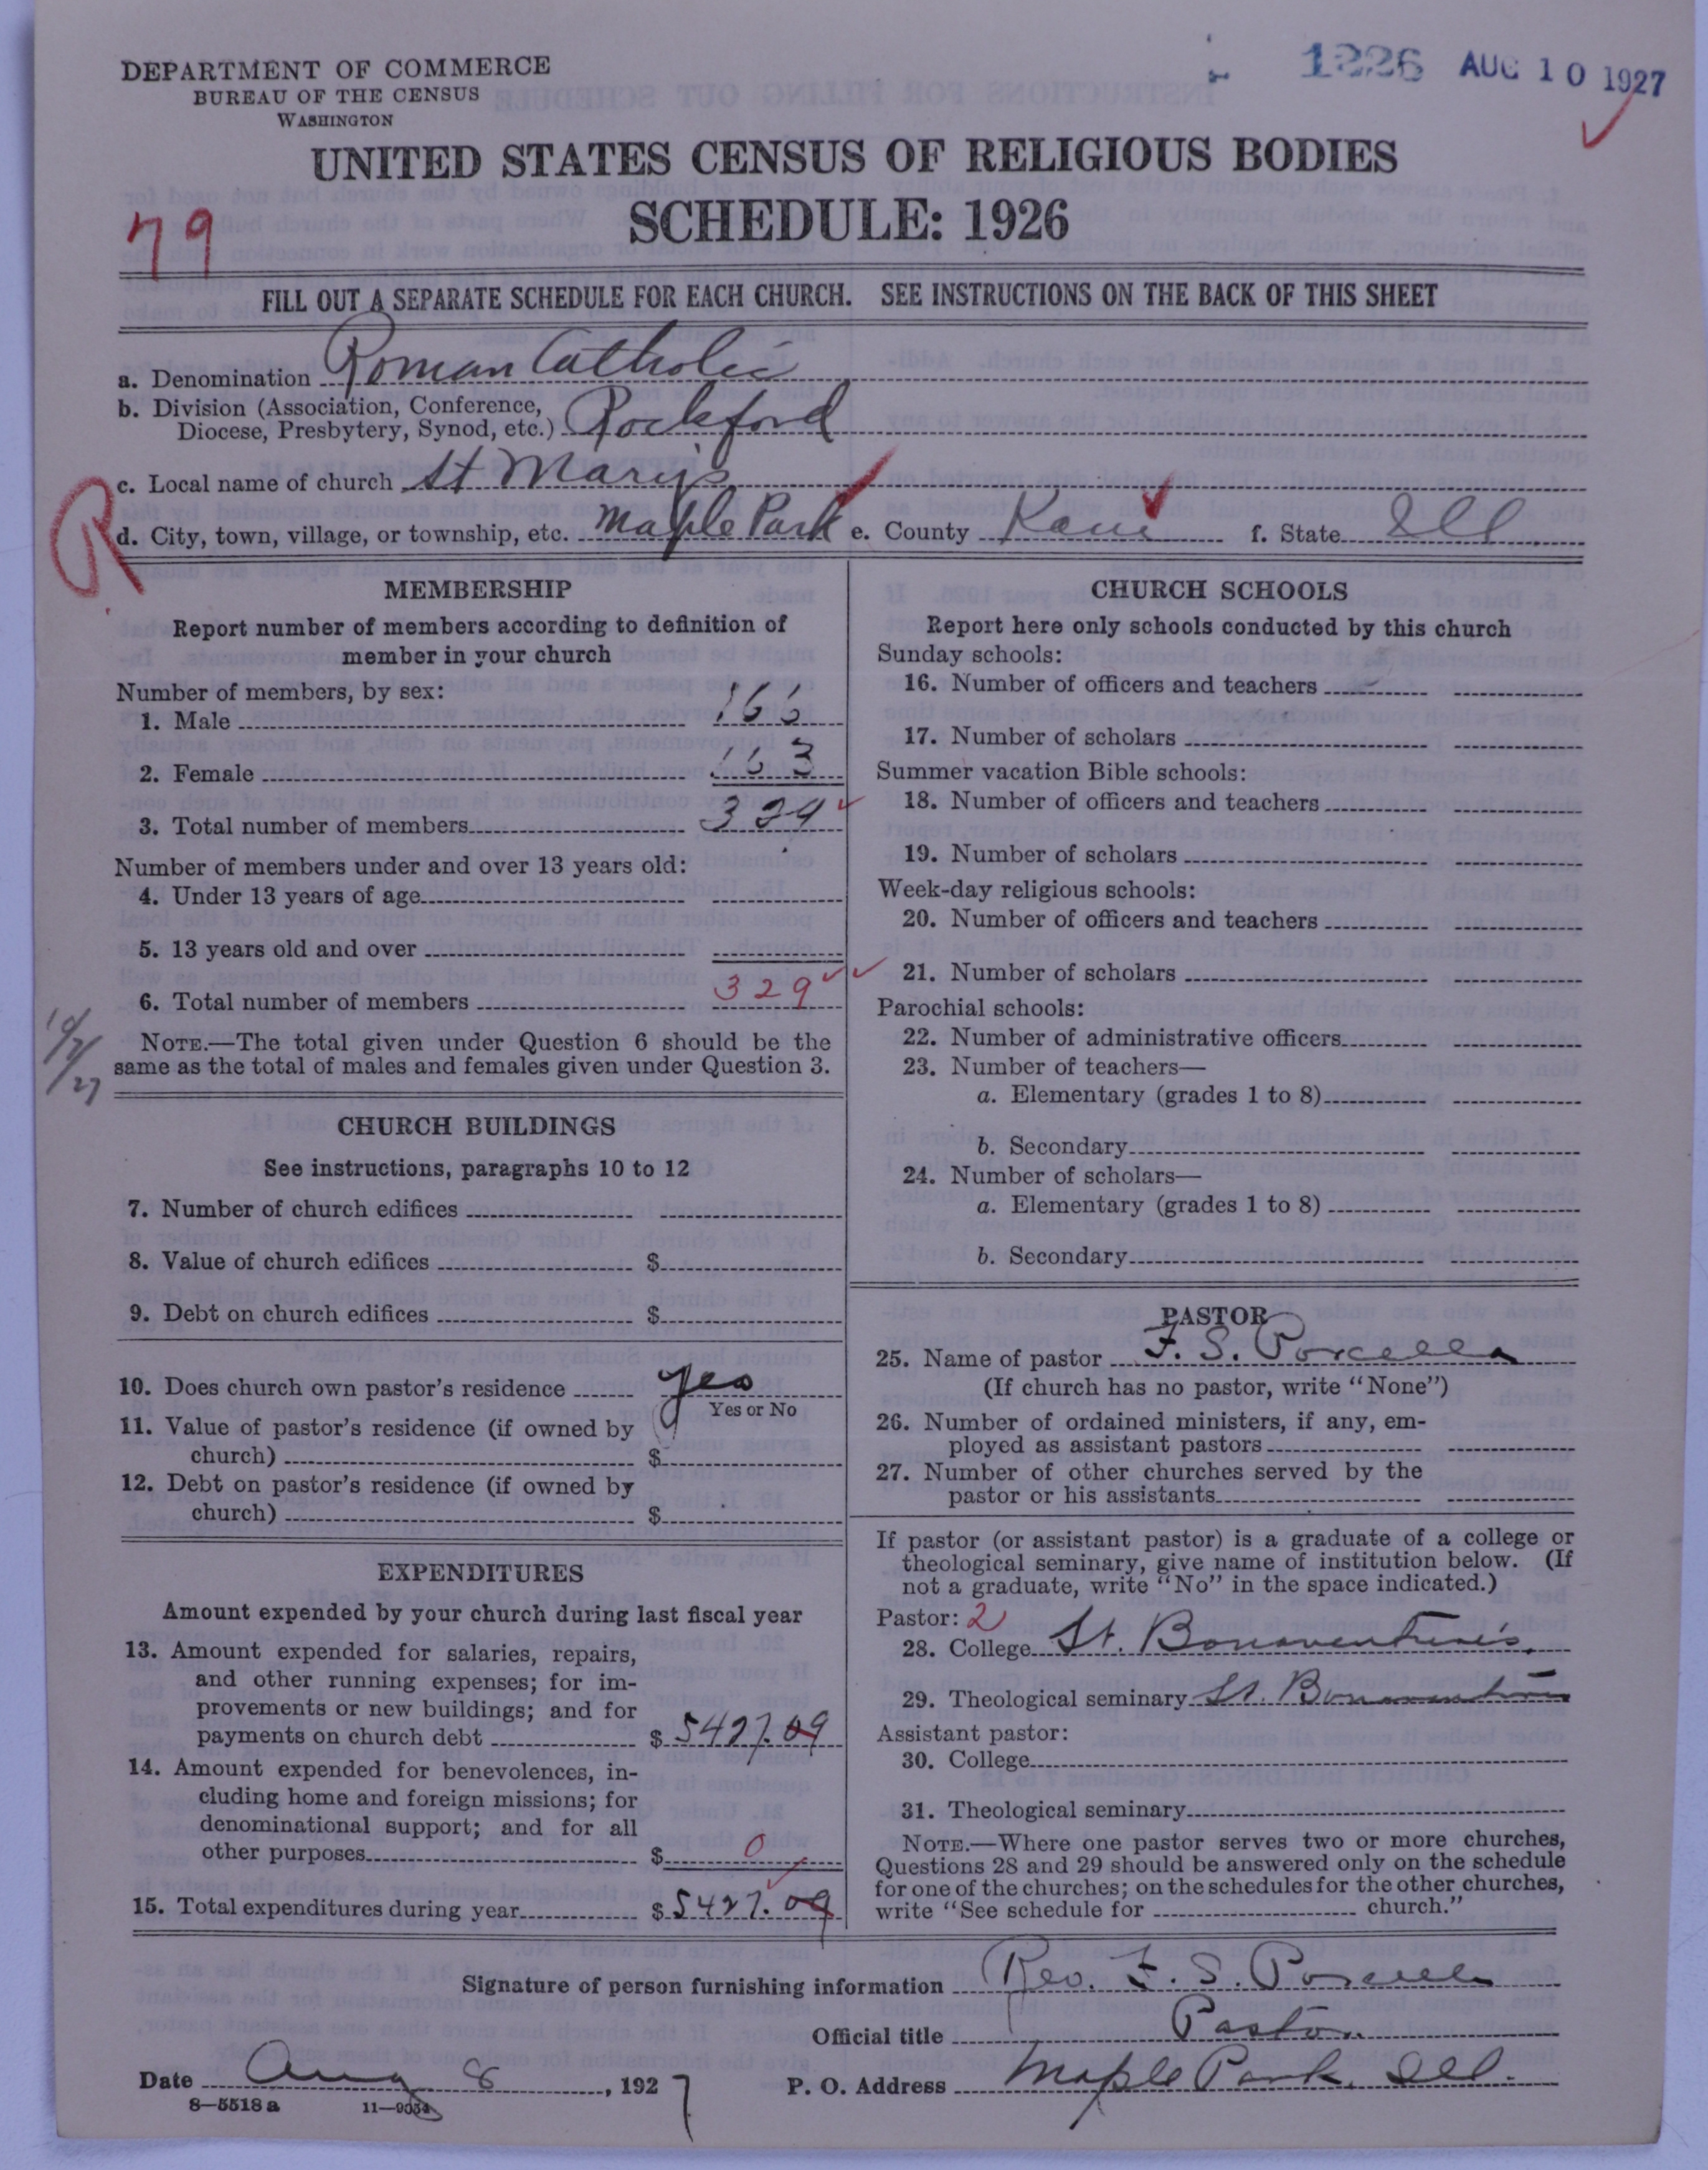 1226 AUG 10 1927
DEPARTMENT OF COMMERCE
BUREAU OF THE CENSUS
WASHINGTON
UNITED STATES CENSUS OF RELIGIOUS BODIES
SCHEDULE: 1926
79
FILL OUT A SEPARATE SCHEDULE FOR EACH CHURCH. SEE INSTRUCTIONS ON THE BACK OF THIS SHEET
a. Denomination Roman Catholic
b. Division (Association, Conference,
Diocese, Presbytery, Synod, etc.) Rockford
c. Local name of church St Marys
R
d. City, town, village, or township, etc. Maple Park e. County Kane f. State Ill
MEMBERSHIP
Report number of members according to definition of
member in your church
Number of members, by sex:
1. Male 166
2. Female 163
3. Total number of members 329
Number of members under and over 13 years old:
4. Under 13 years of age
5. 13 years old and over
6. Total number of members 329
10/7/27
NOTE.—The total given under Question 6 should be the
same as the total of males and females given under Question 3.
CHURCH BUILDINGS
See instructions, paragraphs 10 to 12
7. Number of church edifices
8. Value of church edifices $
9. Debt on church edifices $
10. Does church own pastor's residence yes
Yes or No
11. Value of pastor's residence (if owned by
church) $
12. Debt on pastor's residence (if owned by
church) $
EXPENDITURES
Amount expended by your church during last fiscal year
13. Amount expended for salaries, repairs,
and other running expenses; for im-
provements or new buildings; and for
payments on church debt $5427.09
14. Amount expended for benevolences, in-
cluding home and foreign missions; for
denominational support; and for all
other purposes $ 0
15. Total expenditures during year $5427.09
CHURCH SCHOOLS
Report here only schools conducted by this church
Sunday schools:
16. Number of officers and teachers
17. Number of scholars
Summer vacation Bible schools:
18. Number of officers and teachers
19. Number of scholars
Week-day religious schools:
20. Number of officers and teachers
21. Number of scholars
Parochial schools:
22. Number of administrative officers
23. Number of teachers—
a. Elementary (grades 1 to 8)
b. Secondary
24. Number of scholars—
a. Elementary (grades 1 to 8)
b. Secondary
PASTOR
25. Name of pastor F. S. Porcella
(If church has no pastor, write "None")
26. Number of ordained ministers, if any, em-
ployed as assistant pastors
27. Number of other churches served by the
pastor or his assistants
If pastor (or assistant pastor) is a graduate of a college or
theological seminary, give name of institution below. (If
not a graduate, write "No" in the space indicated.)
Pastor: 2
28. College St. Bonaventure's
29. Theological seminary St. Bonaventure
Assistant pastor:
30. College
31. Theological seminary
NOTE.—Where one pastor serves two or more churches,
Questions 28 and 29 should be answered only on the schedule
for one of the churches; on the schedules for the other churches,
write "See schedule for church."
Signature of person furnishing information Rev. F. S. Porcella
Official title Pastor
Date Aug 8, 1927 P. O. Address Maple Park, Ill.
8—5518 a 11—9034